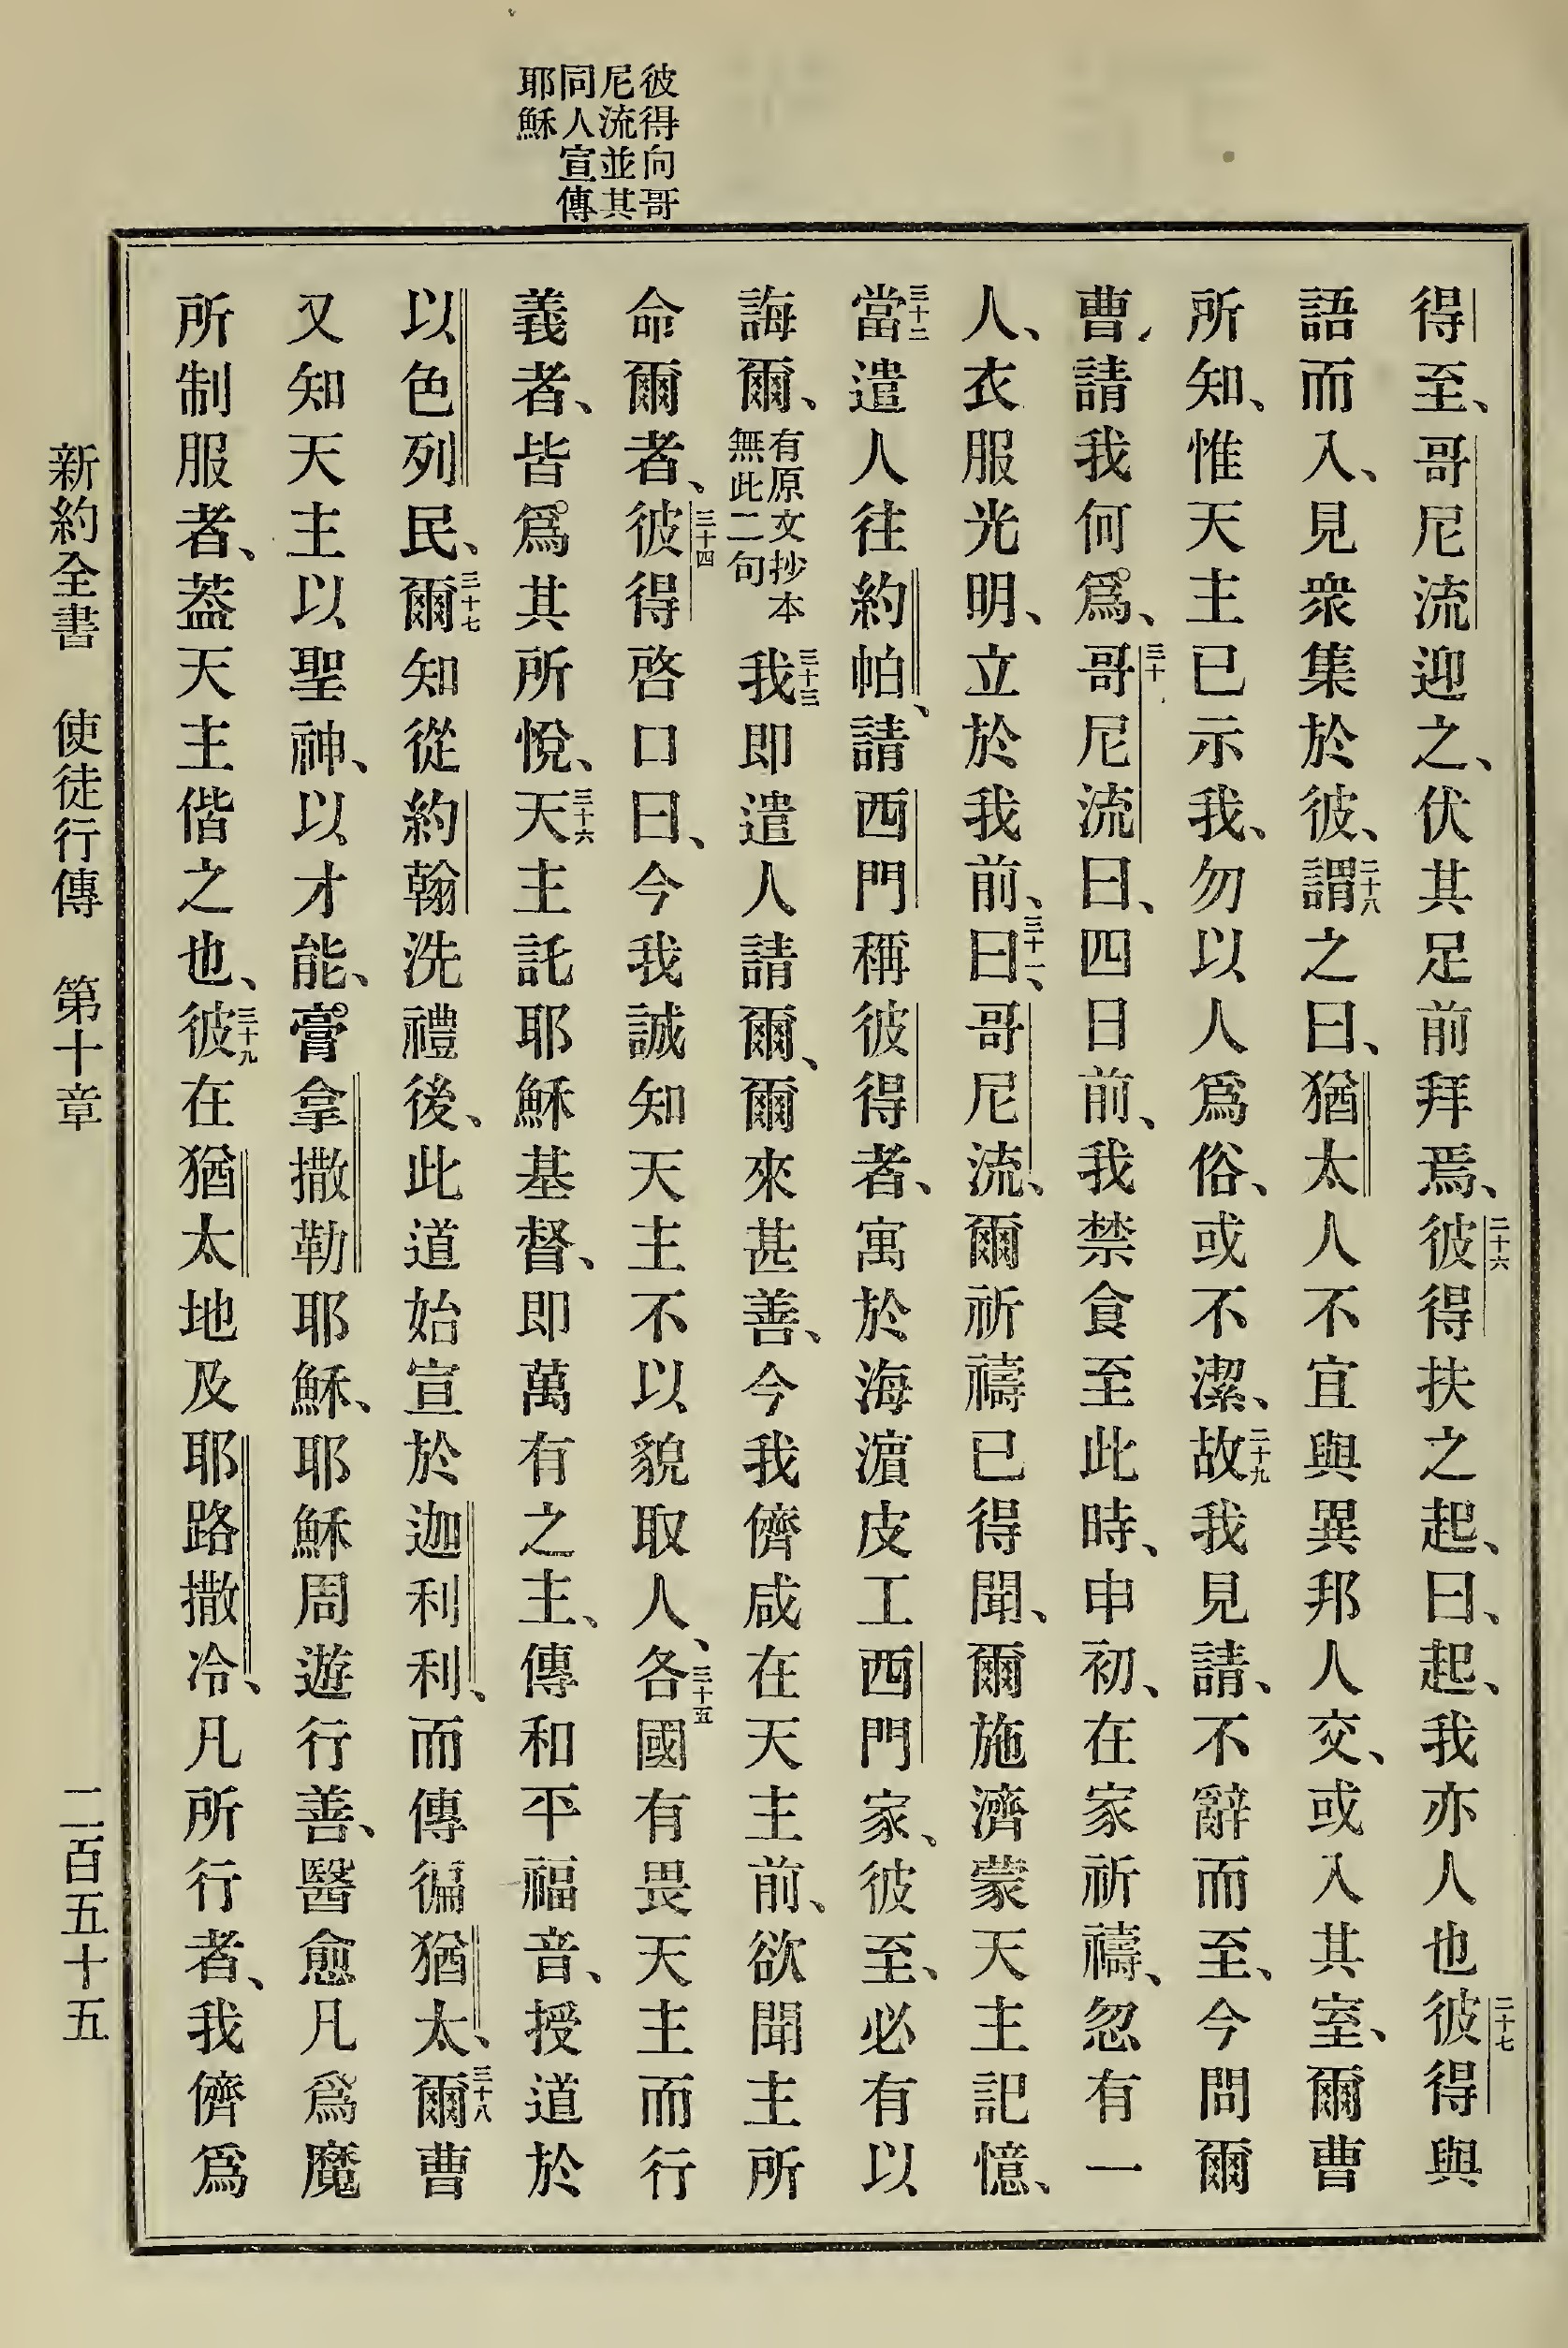 彼得向哥
尼流並其
同人宣傳
耶穌
得至、哥尼流迎之、伏其足前拜焉、二十六彼得扶之起、曰、起、我亦人也二十七彼得與
語而入、見衆集於彼、二十八謂之曰、猶太人不宜與異邦人交、或入其室、爾曹
所知、惟天主已示我、勿以人爲俗、或不潔、二十九故我見請、不辭而至、今問爾
曹、請我何爲、三十哥尼流曰、四日前、我禁食至此時、申初、在家祈禱、忽有一
人、衣服光明、立於我前、三十一曰、哥尼流、爾祈禱已得聞、爾施濟蒙天主記憶、
三十二當遣人往約帕、請西門稱彼得者、寓於海濵皮工西門家、彼至、必有以
誨爾、有原文抄本無此二句三十三我即遣人請爾、爾來甚善、今我儕咸在天主前、欲聞主所
命爾者、三十四彼得啓口曰、今我誠知天主不以貌取人、三十五各國有畏天主而行
義者、皆爲其所悅、三十六天主託耶穌基督、即萬有之主、傳和平福音、授道於
以色列民、三十七爾知從約翰洗禮後、此道始宣於迦利利、而傳徧猶太、三十八爾曹
又知天主以聖神、以才能、膏拿撒勒耶穌、耶穌周遊行善、醫愈凡爲魔
所制服者、葢天主偕之也、三十九彼在猶太地及耶路撒冷、凡所行者、我儕爲
新約全書 使徒行傳 第十章 二百五十五